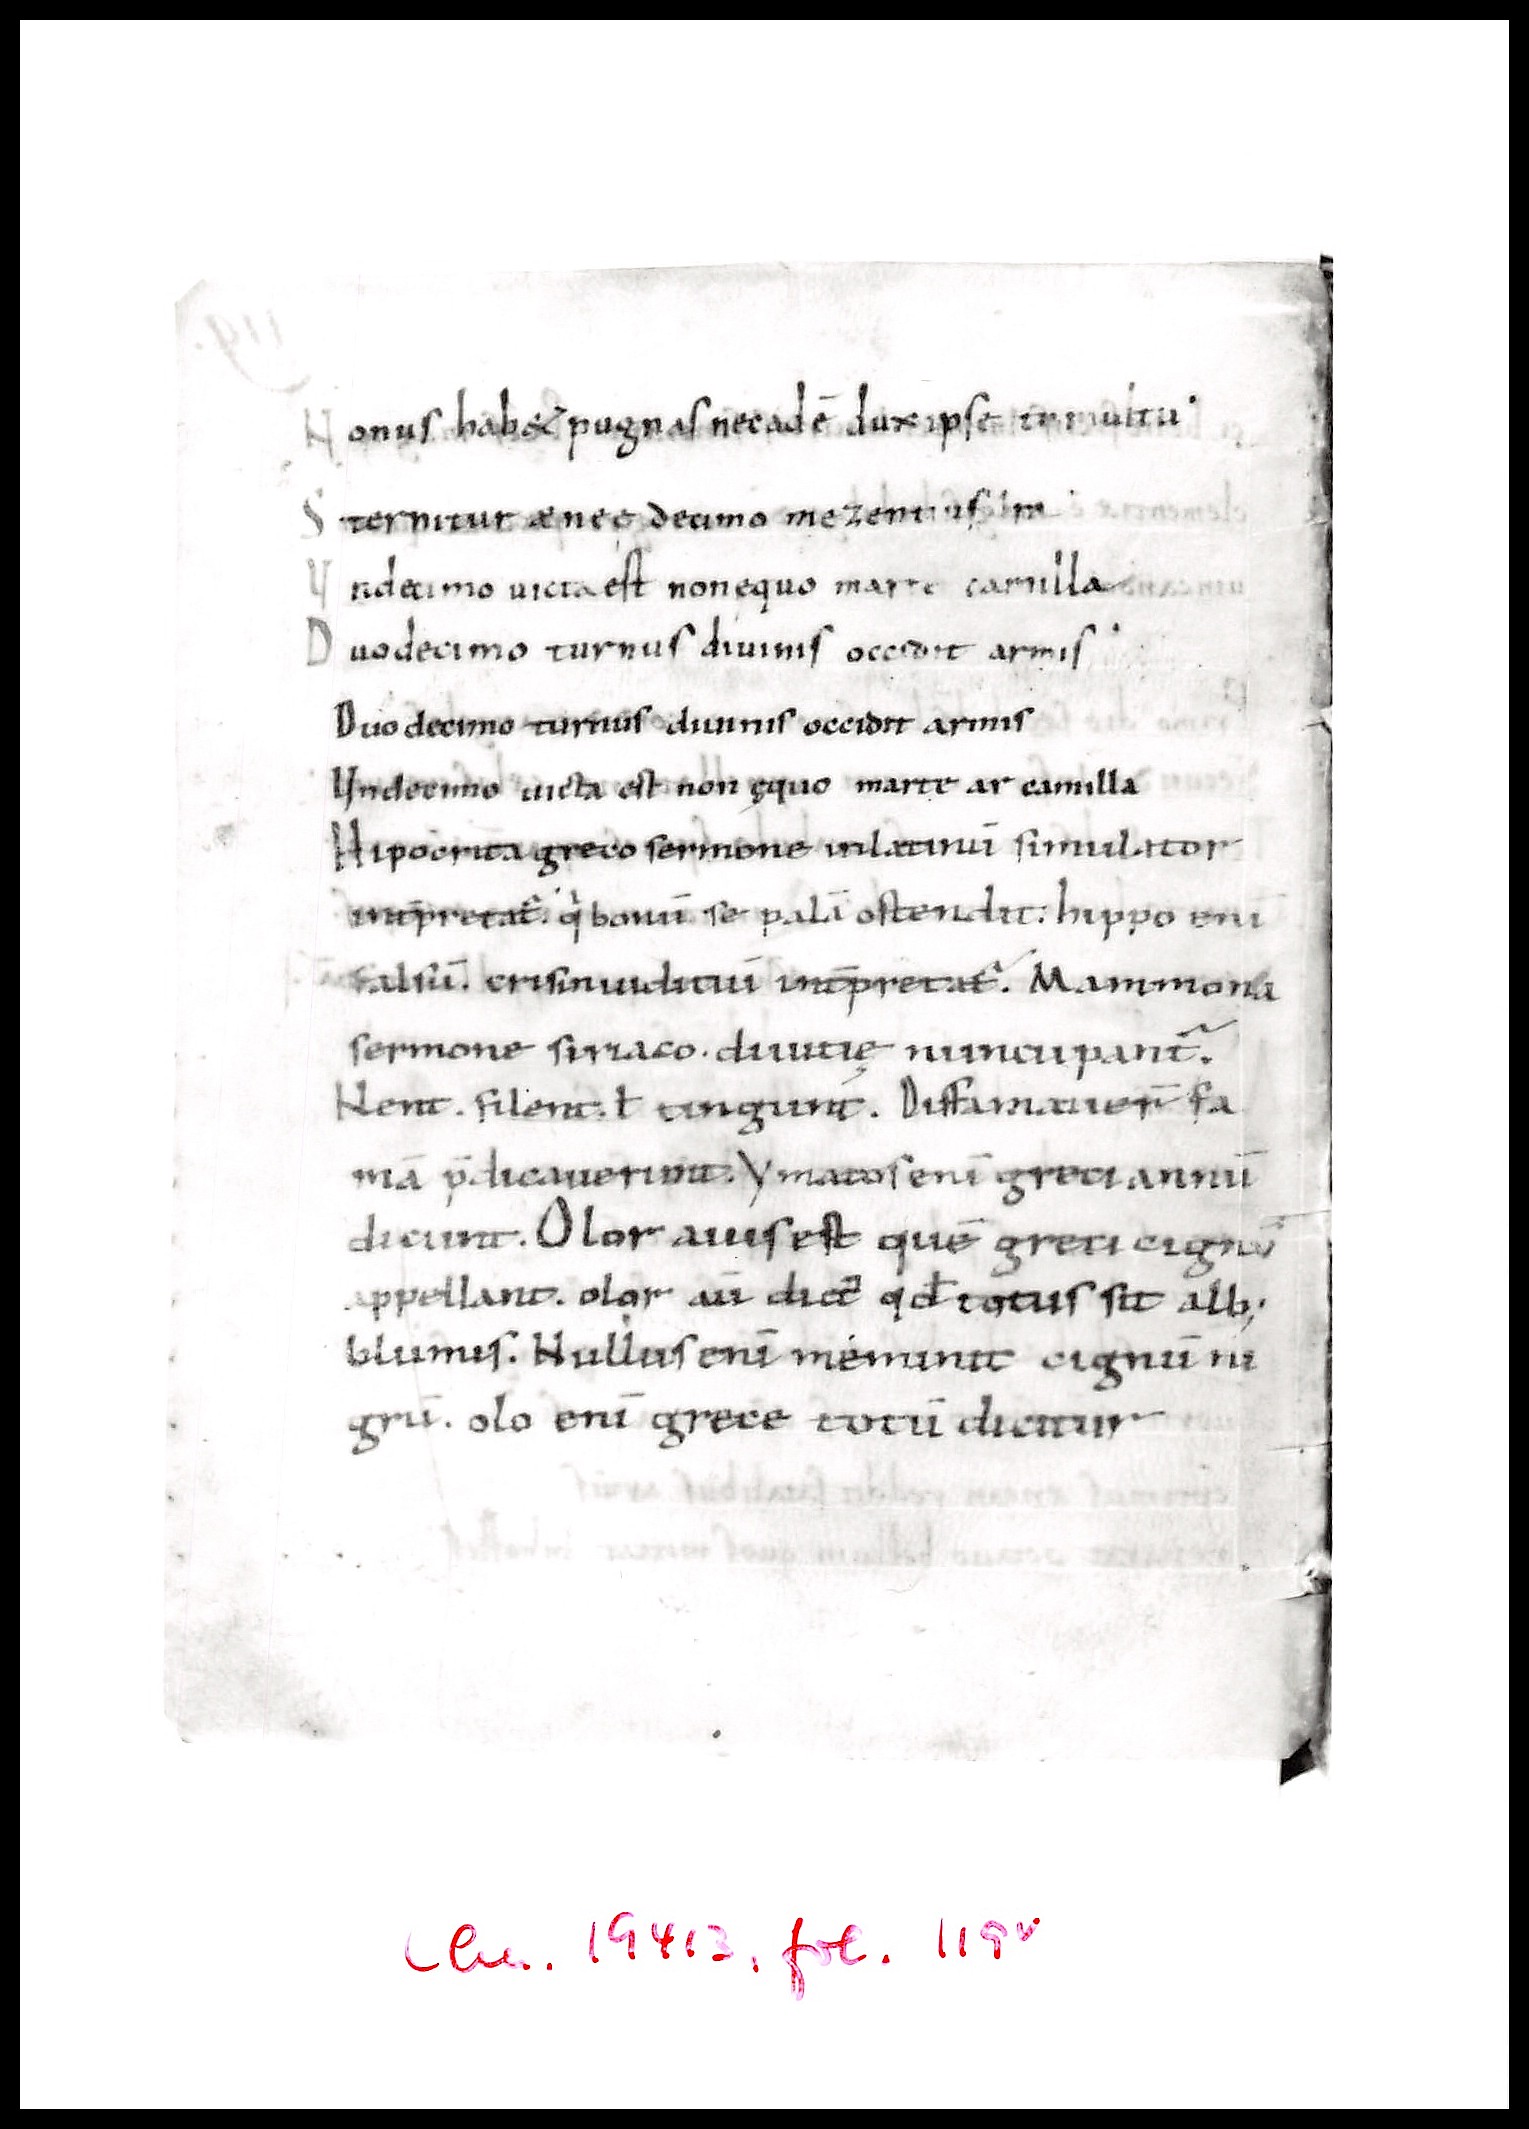 Nonus habet pugnas nec adē dux ipse triūitū
Sternitur æneę decimo mezentius im
Vndecimo victa est non equo marte camilla
Duodecimo turnus diuinis occidit armis
Duodecimo turnus diuinis occidit armis
Vndecimo uicta est non ęquo marte ar camilla
Hipocrita greco sermone inlatinū simulator
intp̄retat᷑. qͥ bonū se palā ostendit. hippo enī
falsū. crisin iudiciū intp̄retat᷑. Mammona
sermone siriaco. diuitię nuncupant᷑.
Nent. filent. ł tingunt. Diffamauer̄ fa
mā p̄dicauerunt. Ymatos enī greci annū
dicunt. Olor auis est quē greci cignū
appellant. olor aū dict᷑ qđ totus sit alb;
blumis. Nullus enī meminit cignū ni
grū. olo enī grece totū dicitur
clm. 19413, fol. 119v